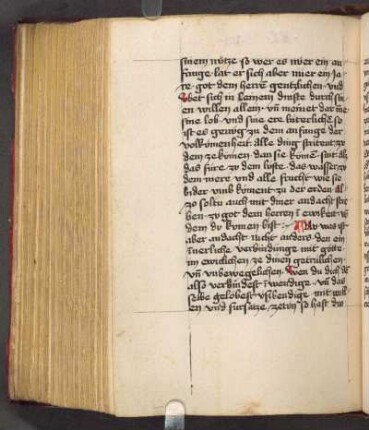 sinem nocze so wer es nwer ein an
fange · lat er sich aber nwer ein Ja
re · got dem herre gentzlichen · und
sich in seinem dinste durch sin
en willen allem · vn meinet dar Jnne
sine lob · und sine ere luterliche so
ist es genvg zu dem anfange der
volkomenheit · alle ding stritent zu
dem ze komen · dan sie komen sint als
das füre zu dem lufte · das wasser zu
dem mere und alle frucht wie sie
wider vmb koment zu der erden al
zo soltu auch mit diner andacht stre
ben zu got dem herren von
dem du komen bist · Nu was ist
aber andacht nicht anders den ein
Jnnerliche verbindunge mit gotte
im ewiclichen ze dinen getrulichen
vn unbewegelichen · wen du dich
also verbindest Jnwendige · vn das
selbe gelobest usbendige mit will
en und fursatze so hast du